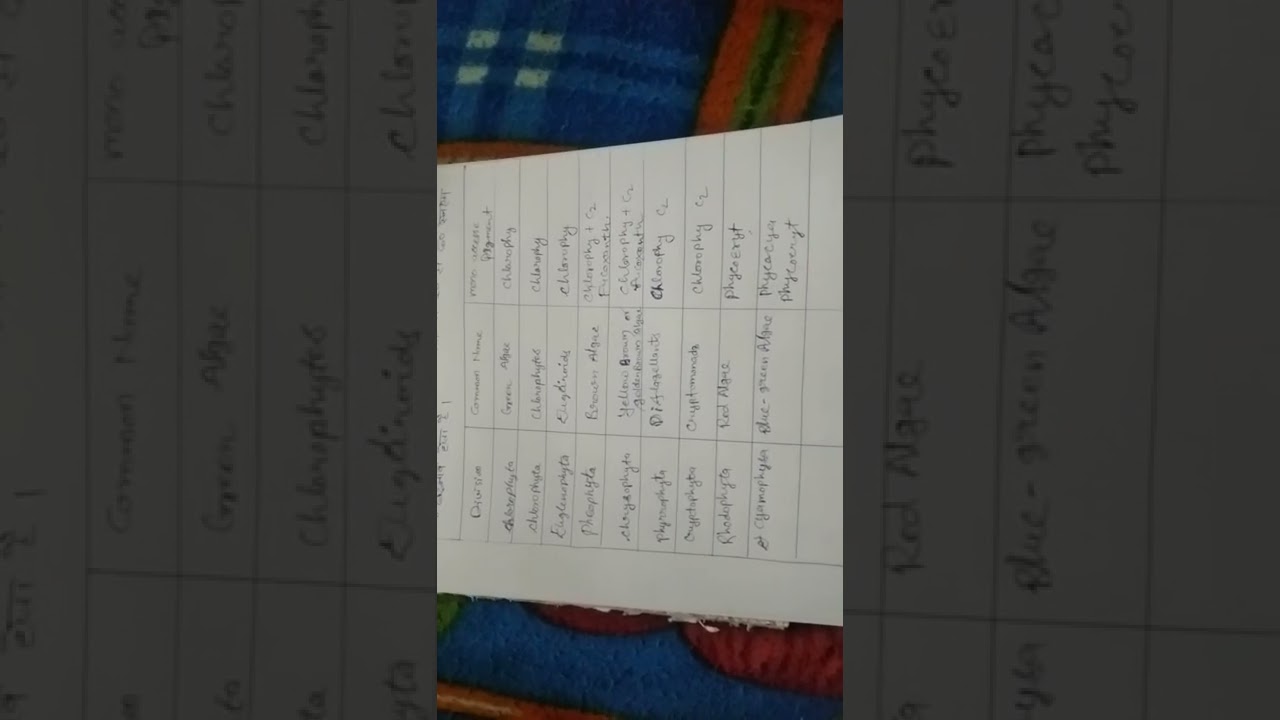 Division Common Name more accesse pigment
Chlorophyta Green Algae Chlorophy
Chlorophyta Chlorophytes Chlorophy
Euglenophyta Euglinoids Chlorophy
Pheophyta Brown Algae Chlorophy + C2 Fucoxanth.
Chrysophyta Yellow Brown or golden Brown Algae Chlorophy + C2 Fucoxanth
Phyrrophyta Diflagellaits Chlorophy C2
Cryptophyta Cryptomonads Chlorophy C2
Rhodophyta Red Algae Phycoeryt
Cyanophyta Blue-green Algae phycocya phycoeryt